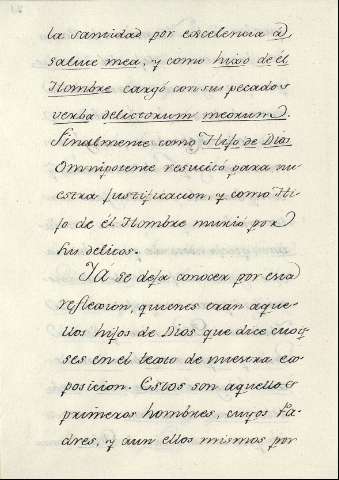 la santidad por escelencia á
salute mea, y como hixo de él
Hombre cargó con sus pecados
verba delictorum meorum.
Finalmente como Hijo de Dios
Omnipotente resucitó para nu-
estra justificacion, y como Hi-
jo de él Hombre murió por
su delitos.
YÁ se deja conocer por esta
reflexion, quienes eran aque-
llos hijos de Dios que dice cuoiy-
ses en el texto de nuestra ex-
posicion. Estos son aquellos
primeros hombres, cuyos Pa-
dres, y aun ellos mismos por